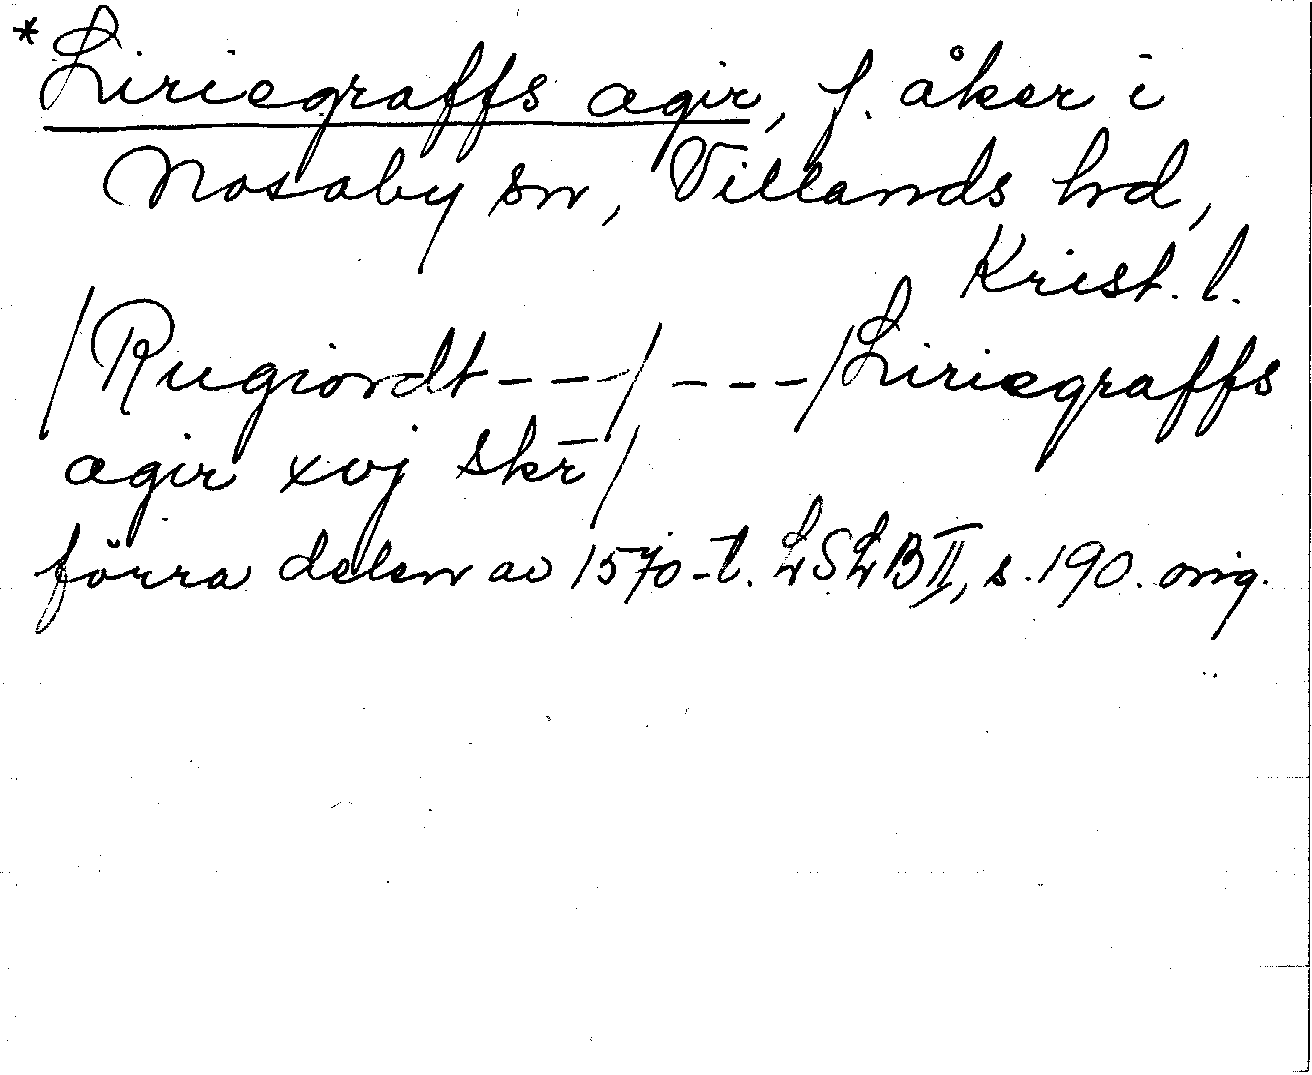 *Liriegraffs agir, f. åker i
Nosaby sn, Villands hd,
Krist. l.
/Rugiordt---/ ---/Liriegraffs
agir xvj skr̄/
förra delen av 1570-t. LSLB II, s. 190. orig.